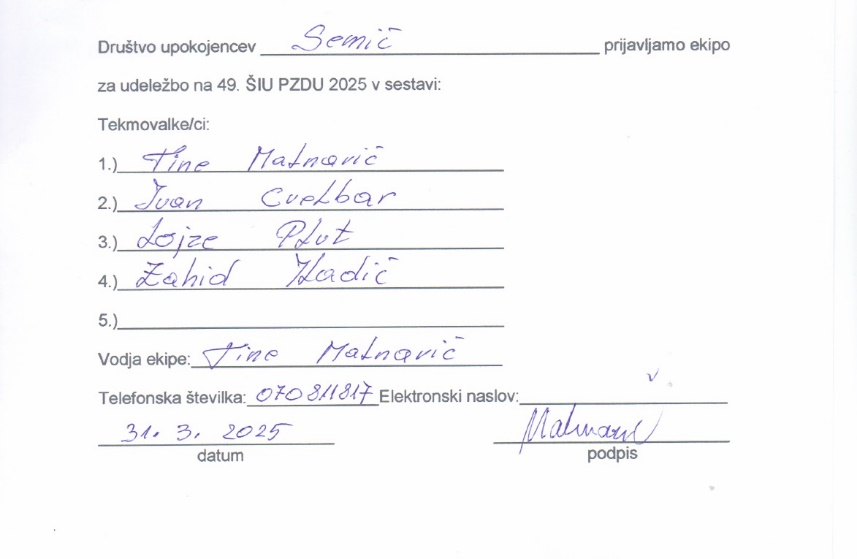 Društvo upokojencev Semič prijavljamo ekipo
za udeležbo na 49. ŠIU PZDU 2025 v sestavi:
Tekmovalke/ci:
1.) Tine Malnarič
2.) Ivan Cvelbar
3.) Lojze Plut
4.) Zahid Hadič
5.)
Vodja ekipe: Tine Malnarič
Telefonska številka: 070 811817 Elektronski naslov:
31. 3. 2025
datum podpis